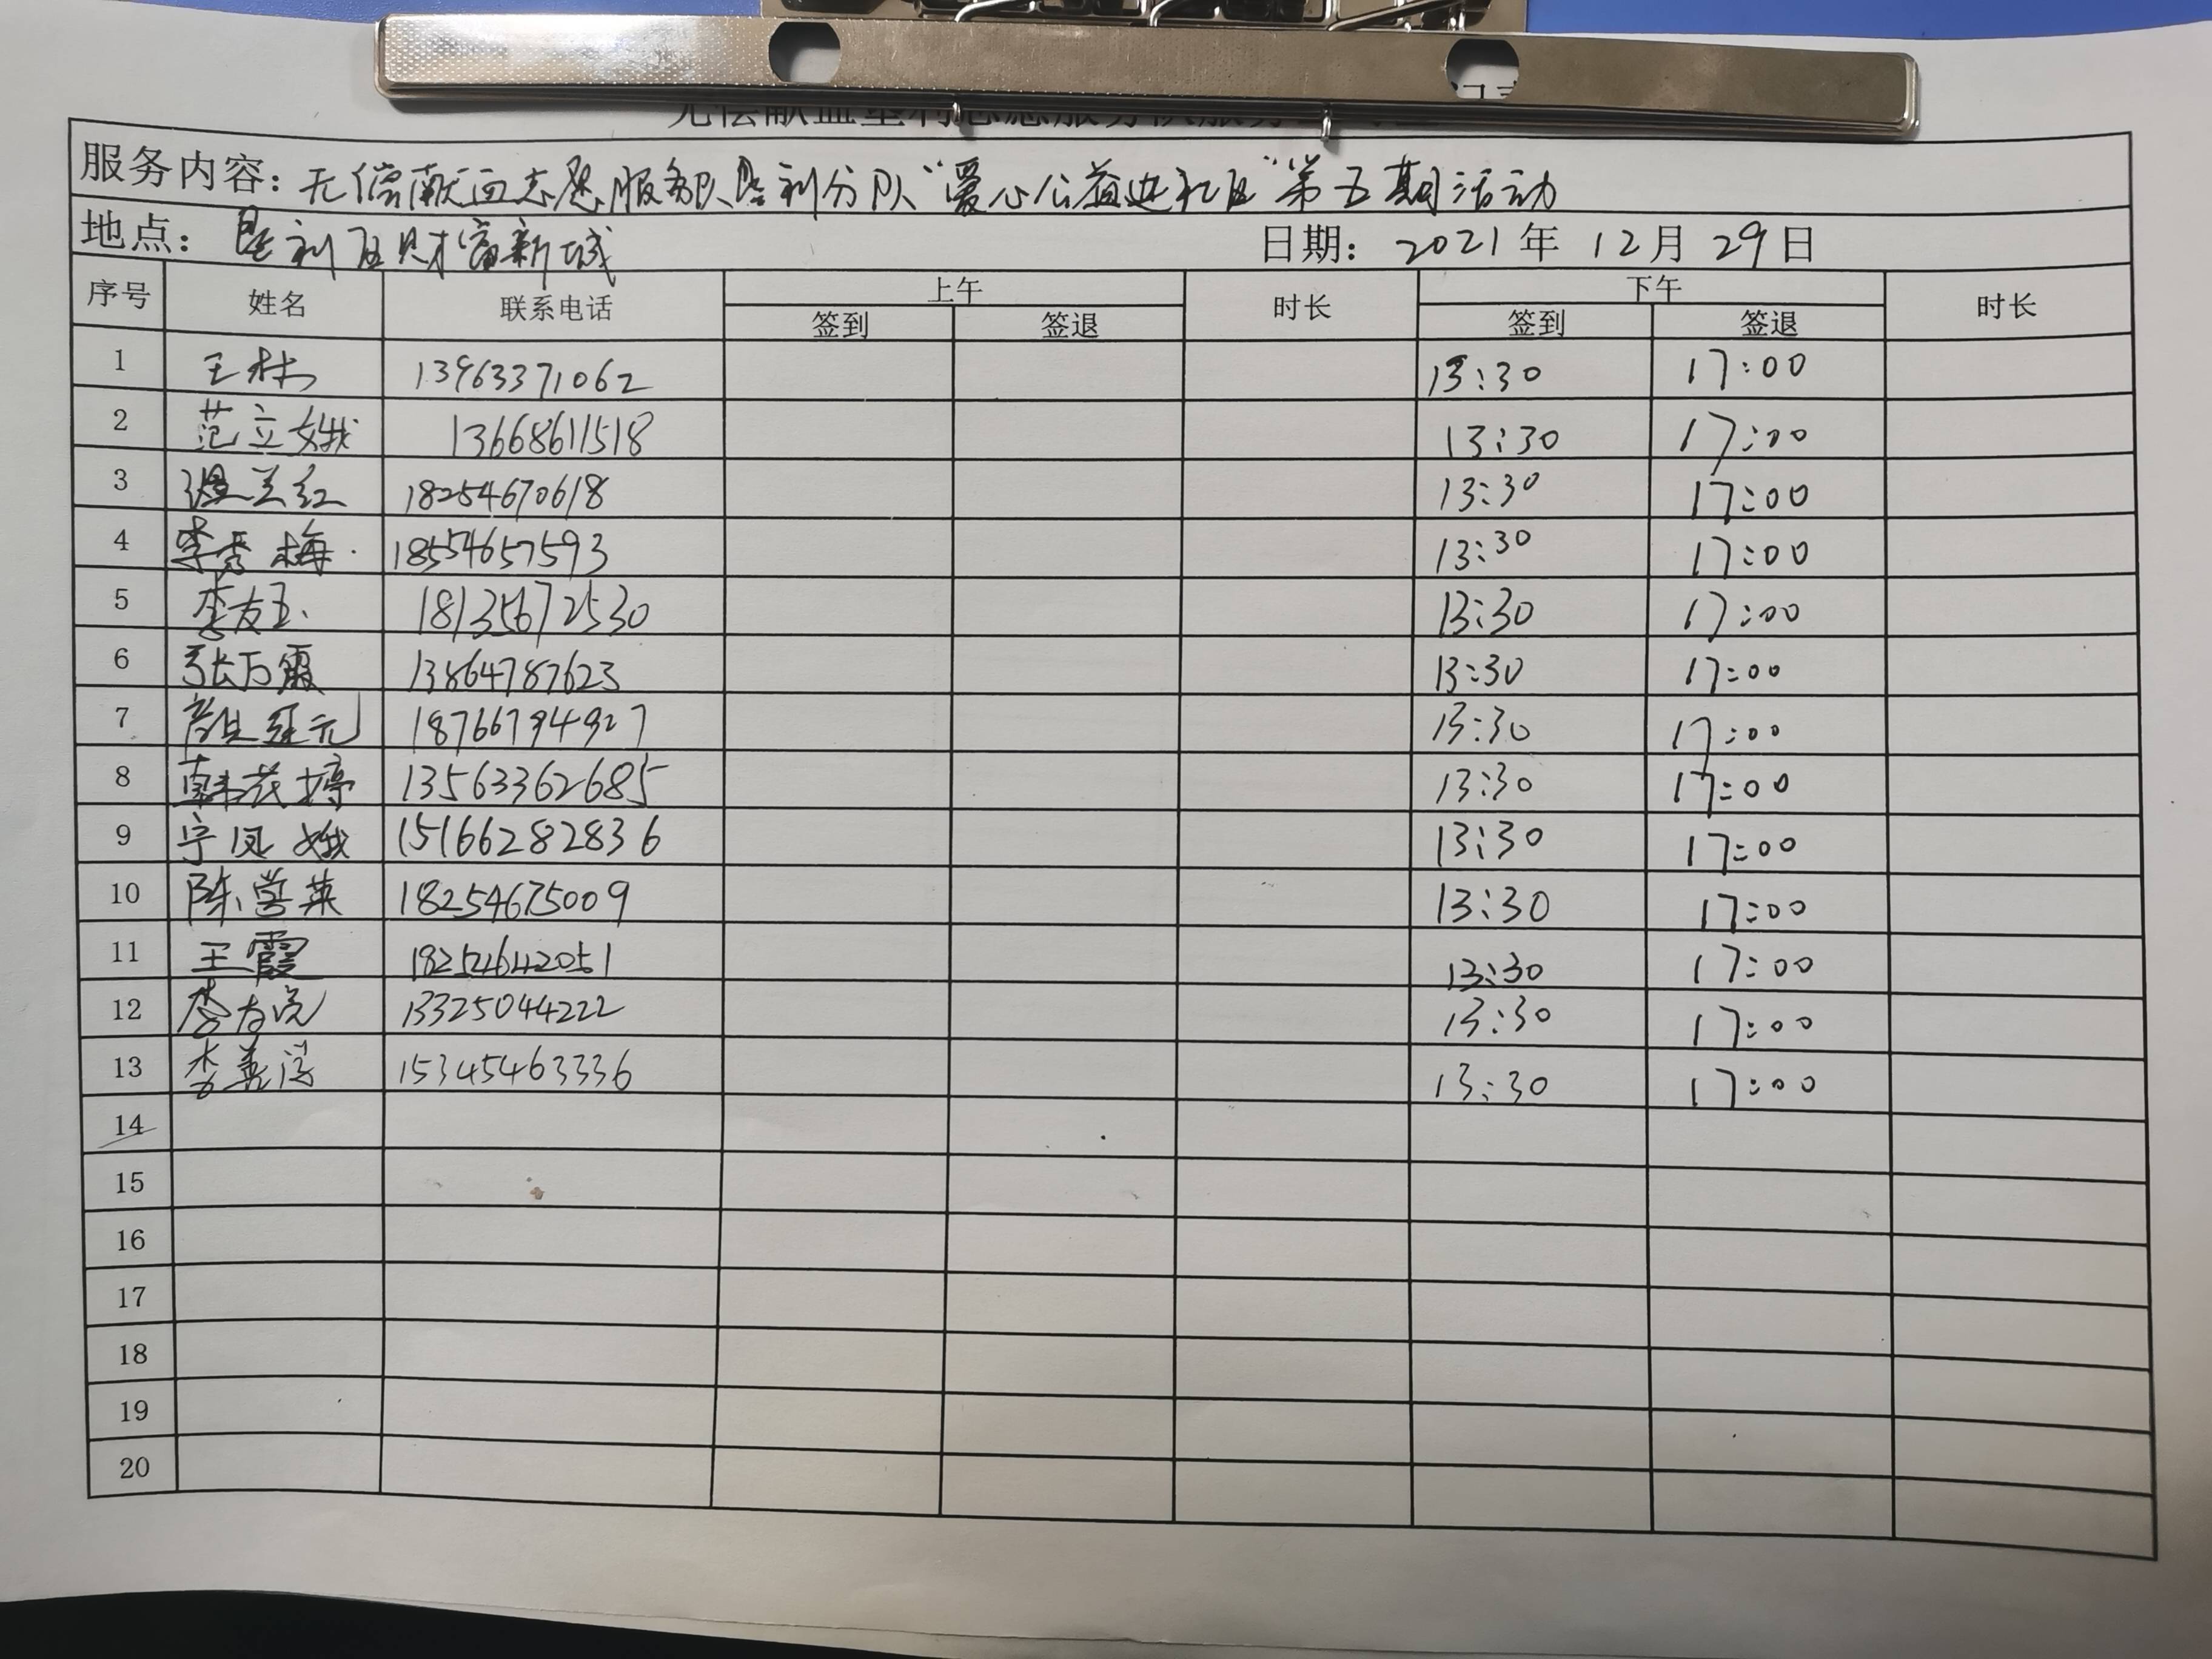 服务内容：无偿献血志愿服务队垦利分队“爱心公益进社区”第五期活动
地点：垦利区财富新城 日期：2021年12月29日
序号 姓名 联系电话 上午 时长 下午 时长
签到 签退 签到 签退
1 王林 13963371062 13:30 17:00
2 范立娥 13668611518 13:30 17:00
3 温兰红 18254670618 13:30 17:00
4 李秀梅 18554657593 13:30 17:00
5 李友玉 18135672530 13:30 17:00
6 张万霞 13864787623 13:30 17:00
7 18766794927 13:30 17:00
8 韩茂婷 13563362685 13:30 17:00
9 宁凤娥 15166282836 13:30 17:00
10 陈営英 18254675009 13:30 17:00
11 王霞 18254642051 13:30 17:00
12 13325044222 13:30 17:00
13 15345463336 13:30 17:00
14
15
16
17
18
19
20